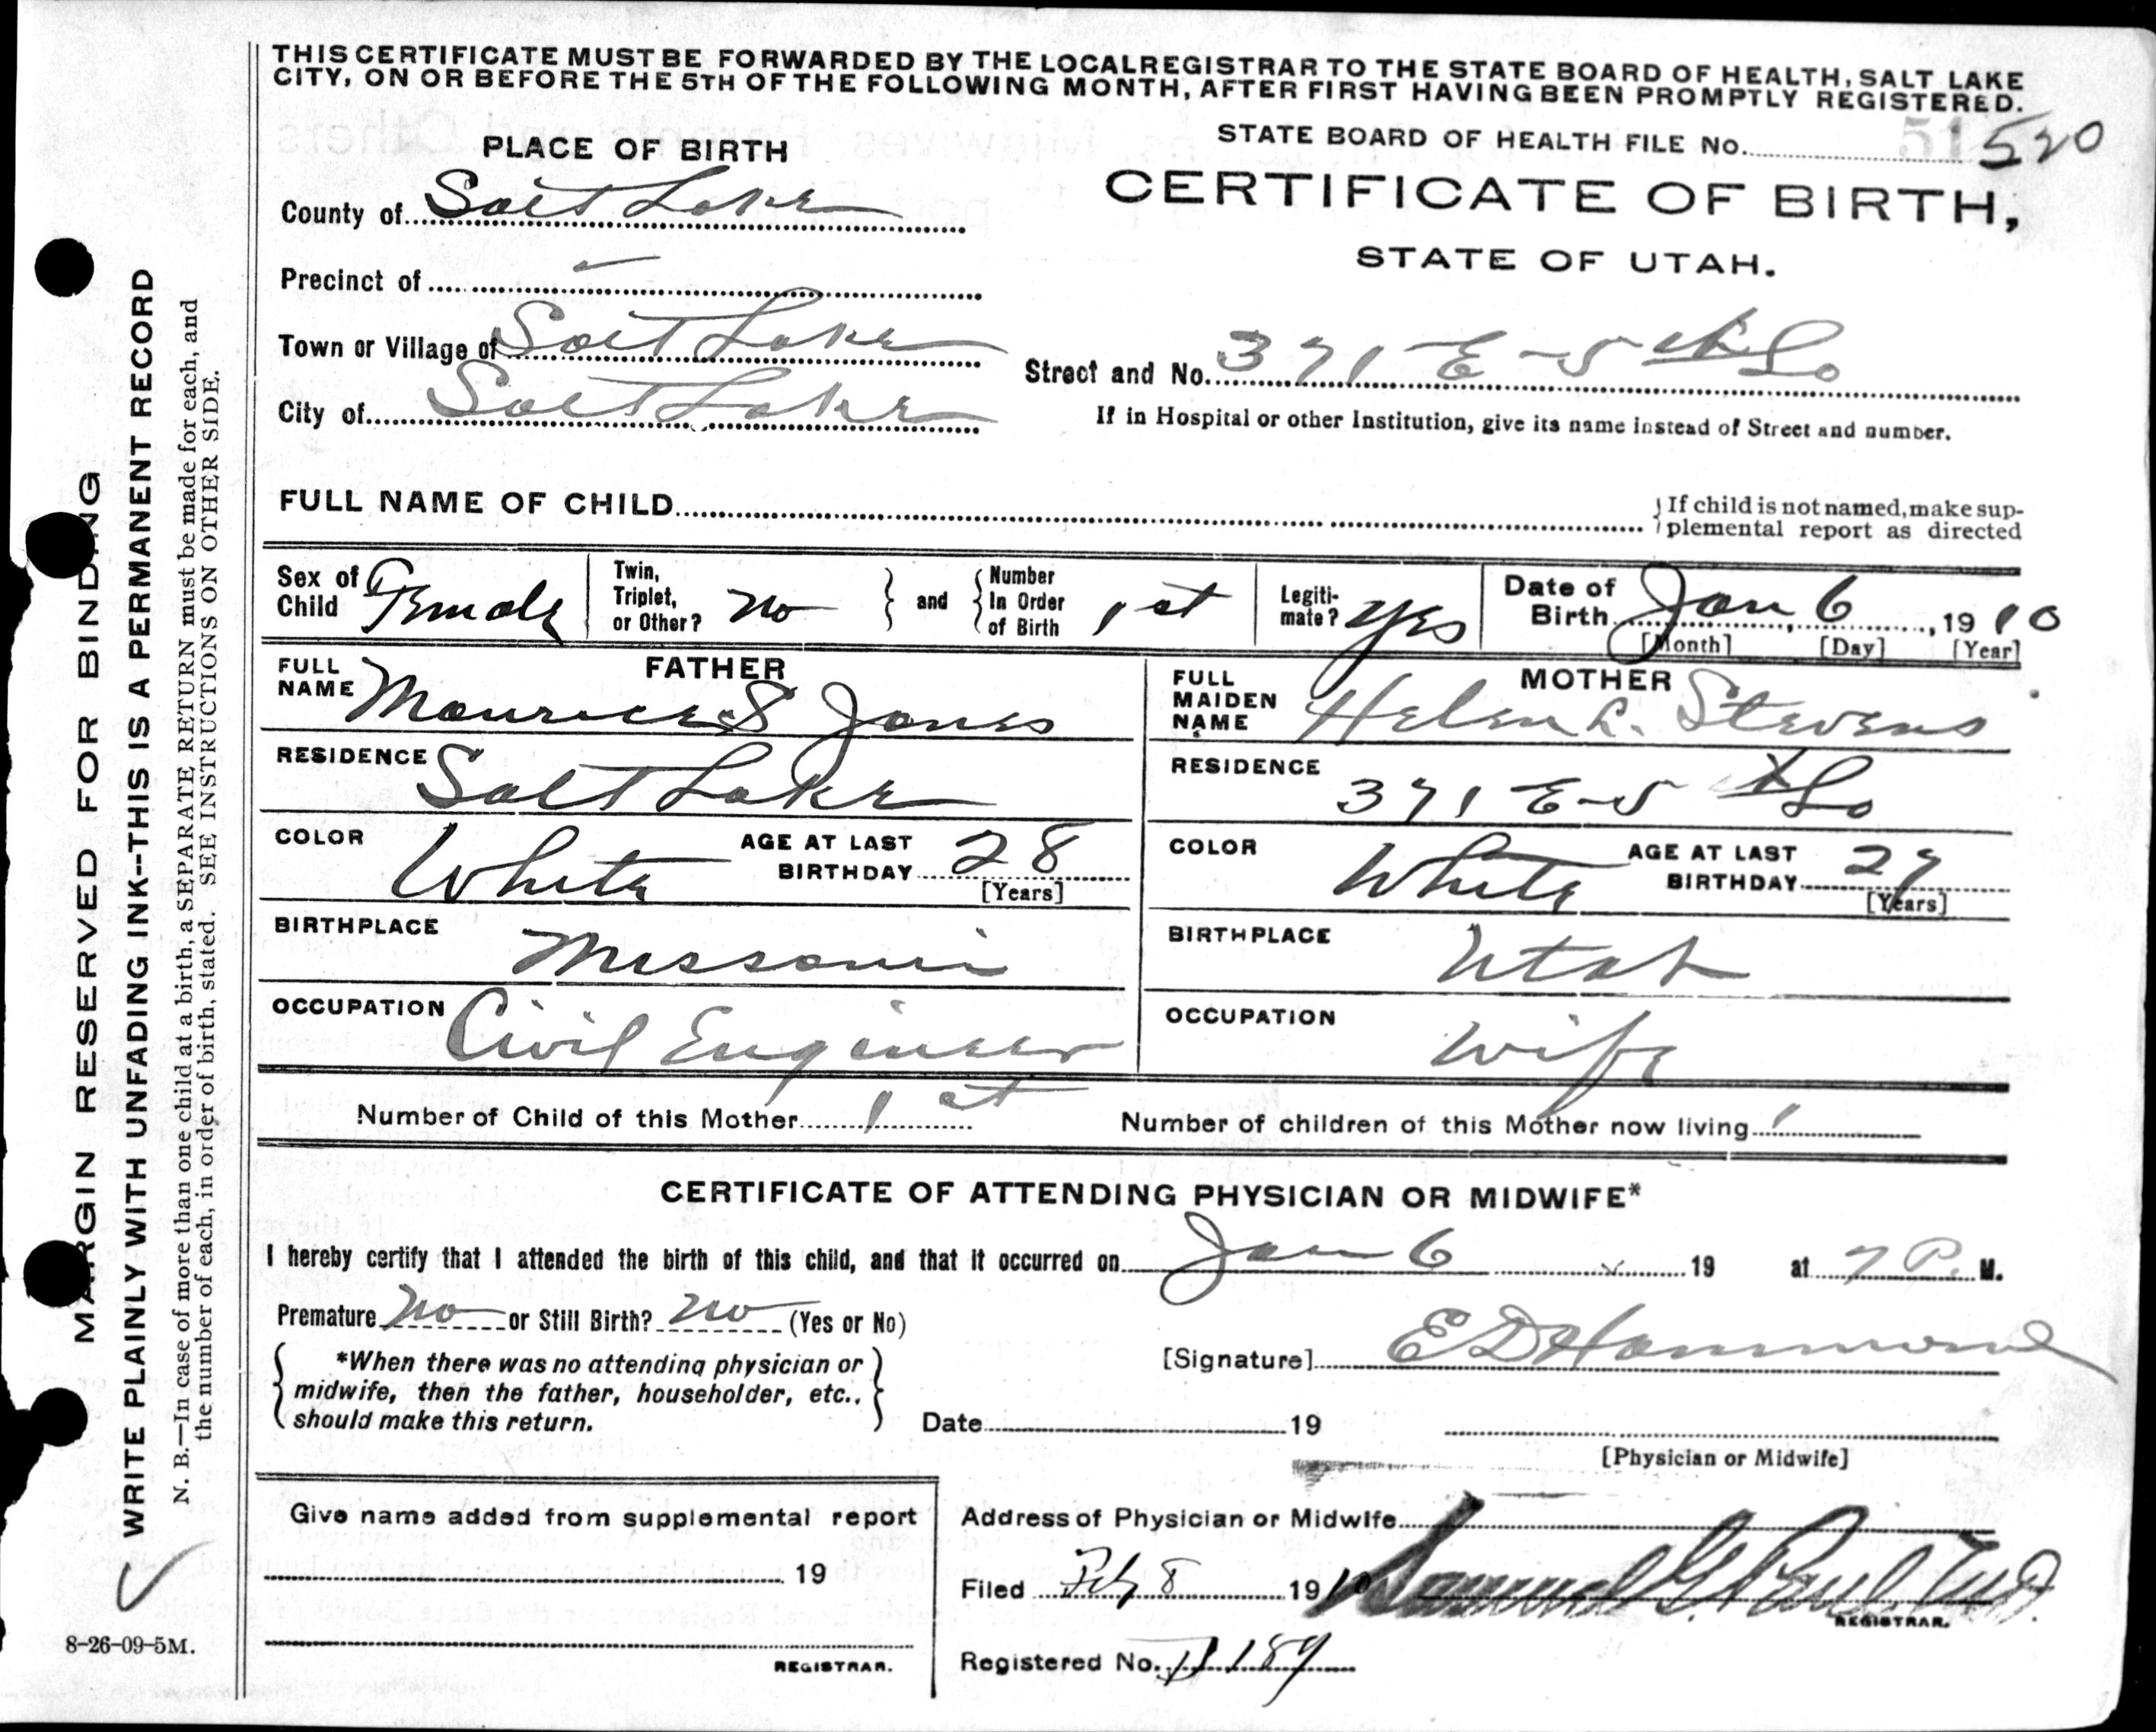 THIS CERTIFICATE MUST BE FORWARDED BY THE LOCAL REGISTRAR TO THE STATE BOARD OF HEALTH, SALT LAKE
CITY, ON OR BEFORE THE 5TH OF THE FOLLOWING MONTH, AFTER FIRST HAVING BEEN PROMPTLY REGISTERED.
STATE BOARD OF HEALTH FILE No. 51 520
PLACE OF BIRTH
CERTIFICATE OF BIRTH,
STATE OF UTAH.
County of Salt Lake
Precinct of
Town or Village of Salt Lake
Street and No. 371 E - 5th So
City of Salt Lake
If in Hospital or other Institution, give its name instead of Street and number.
FULL NAME OF CHILD
If child is not named, make sup-
plemental report as directed
Sex of Child Female
Twin, Triplet, or Other? No
and
Number In Order of Birth 1st
Legiti-mate? Yes
Date of Birth Jan 6, 1910
[Month] [Day] [Year]
FATHER
FULL NAME Maurice S Jones
RESIDENCE Salt Lake
COLOR White AGE AT LAST BIRTHDAY 28
[Years]
BIRTHPLACE Missouri
OCCUPATION Civil Engineer
MOTHER
FULL MAIDEN NAME Helen L. Stevens
RESIDENCE 371 E - 5 So
COLOR White AGE AT LAST BIRTHDAY 27
[Years]
BIRTHPLACE Utah
OCCUPATION Wife
Number of Child of this Mother 1st Number of children of this Mother now living 1
CERTIFICATE OF ATTENDING PHYSICIAN OR MIDWIFE*
I hereby certify that I attended the birth of this child, and that it occurred on Jan 6 19 at 7 P. M.
Premature No or Still Birth? No (Yes or No)
*When there was no attending physician or
midwife, then the father, householder, etc.,
should make this return.
[Signature] E D Hammond
Date 19
[Physician or Midwife]
Give name added from supplemental report
19
REGISTRAR.
Address of Physician or Midwife
Filed Feb 8 1910 Samuel G. Paul M.D.
REGISTRAR.
Registered No. 187
MARGIN RESERVED FOR BINDING
WRITE PLAINLY WITH UNFADING INK--THIS IS A PERMANENT RECORD
N. B.—In case of more than one child at a birth, a SEPARATE RETURN must be made for each, and
the number of each, in order of birth, stated. SEE INSTRUCTIONS ON OTHER SIDE.
8-26-09-5M.